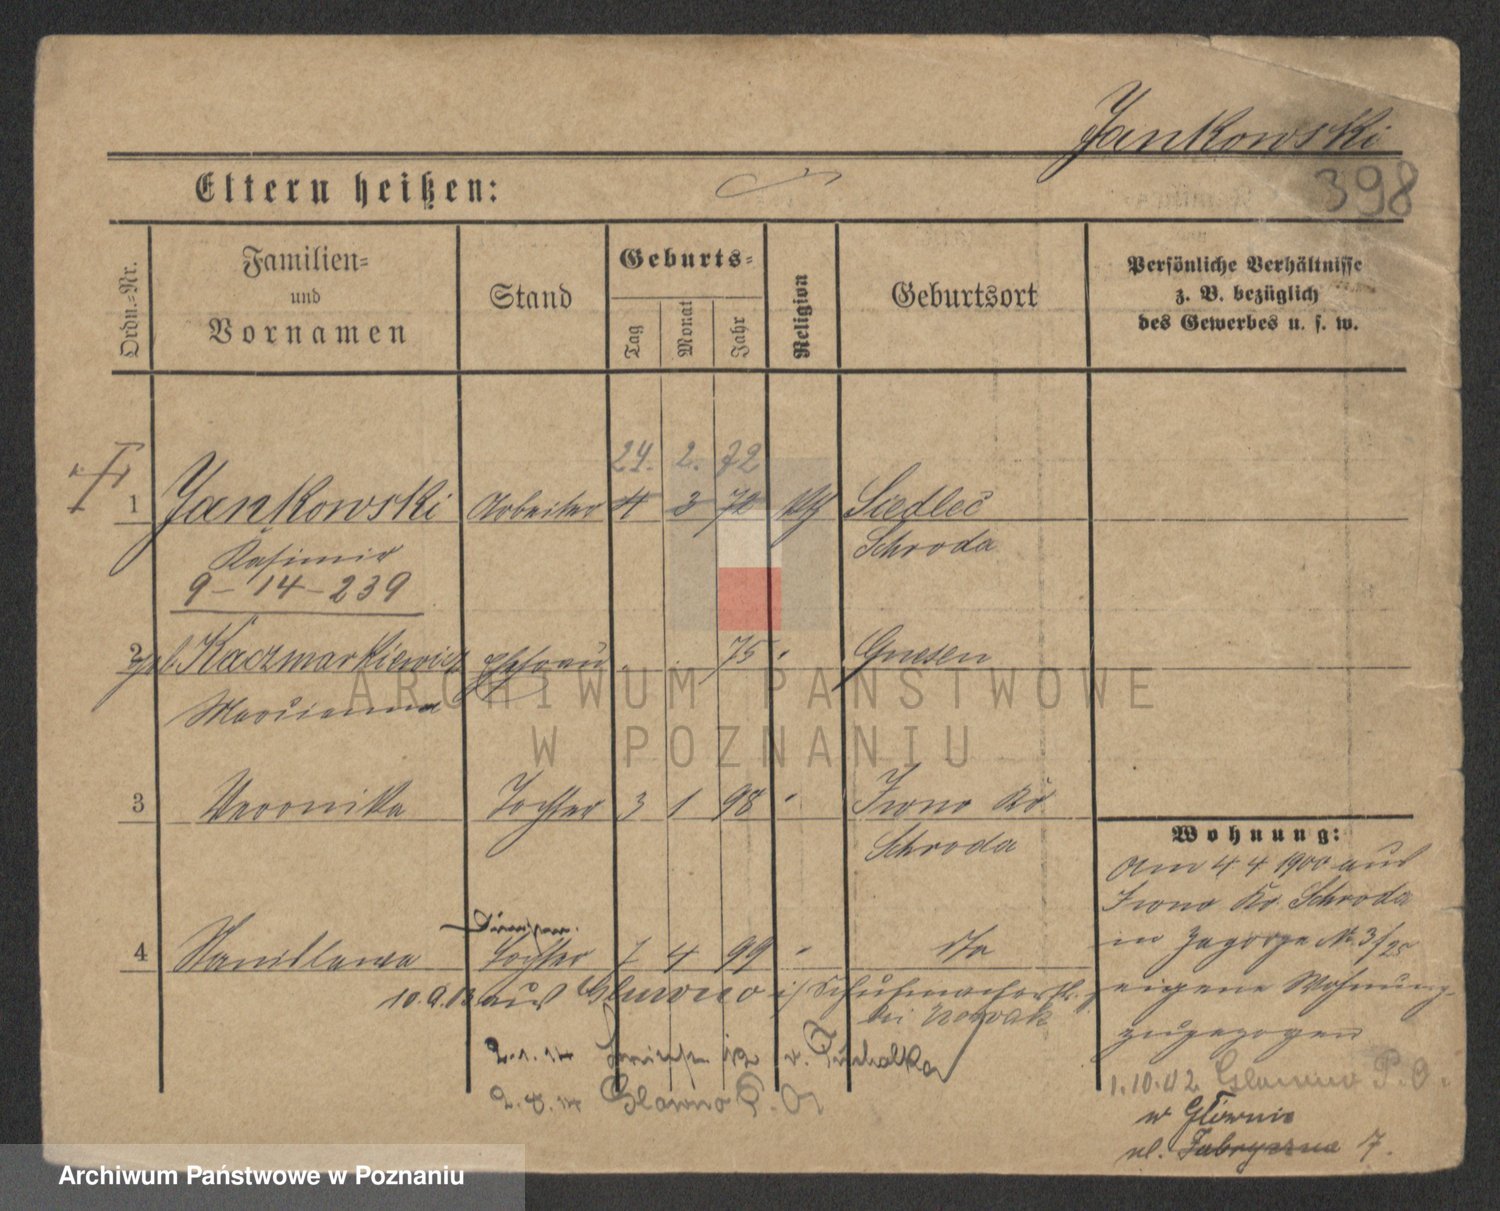 Jankowski
Eltern heißen:
398
Ordn.-Nr.
Familien-
und
Vornamen
Stand
Geburts-
Tag
Monat
Jahr
Religion
Geburtsort
Persönliche Verhältnisse
z. B. bezüglich
des Gewerbes u. s. w.
24. 2. 72
1 Jankowski Arbeiter 4 3 72 kth Siedlec
Kasimir Schroda
9-14-239
2 geb. Kaczmarkiewicz Ehefrau 75 " Gnesen
Marianna
ARCHIWUM PAŃSTWOWE
W POZNANIU
3 Veronika Tochter 3 1 98 " Iwno Kr
Schroda
Wohnung:
Am 4 4 1900 aus
Iwno Kr. Schroda
in Zagorze № 3/25
eigene Wohnung
zugezogen
1.10.02 Glowno P.O.
w Głównie
ul. Fabryczna 7.
4 Stanislawa Tochter 7 4 99 " Da
aus Glowno
bei Nowak
2.1.14
2.8.14 Glowno P. O
Archiwum Państwowe w Poznaniu